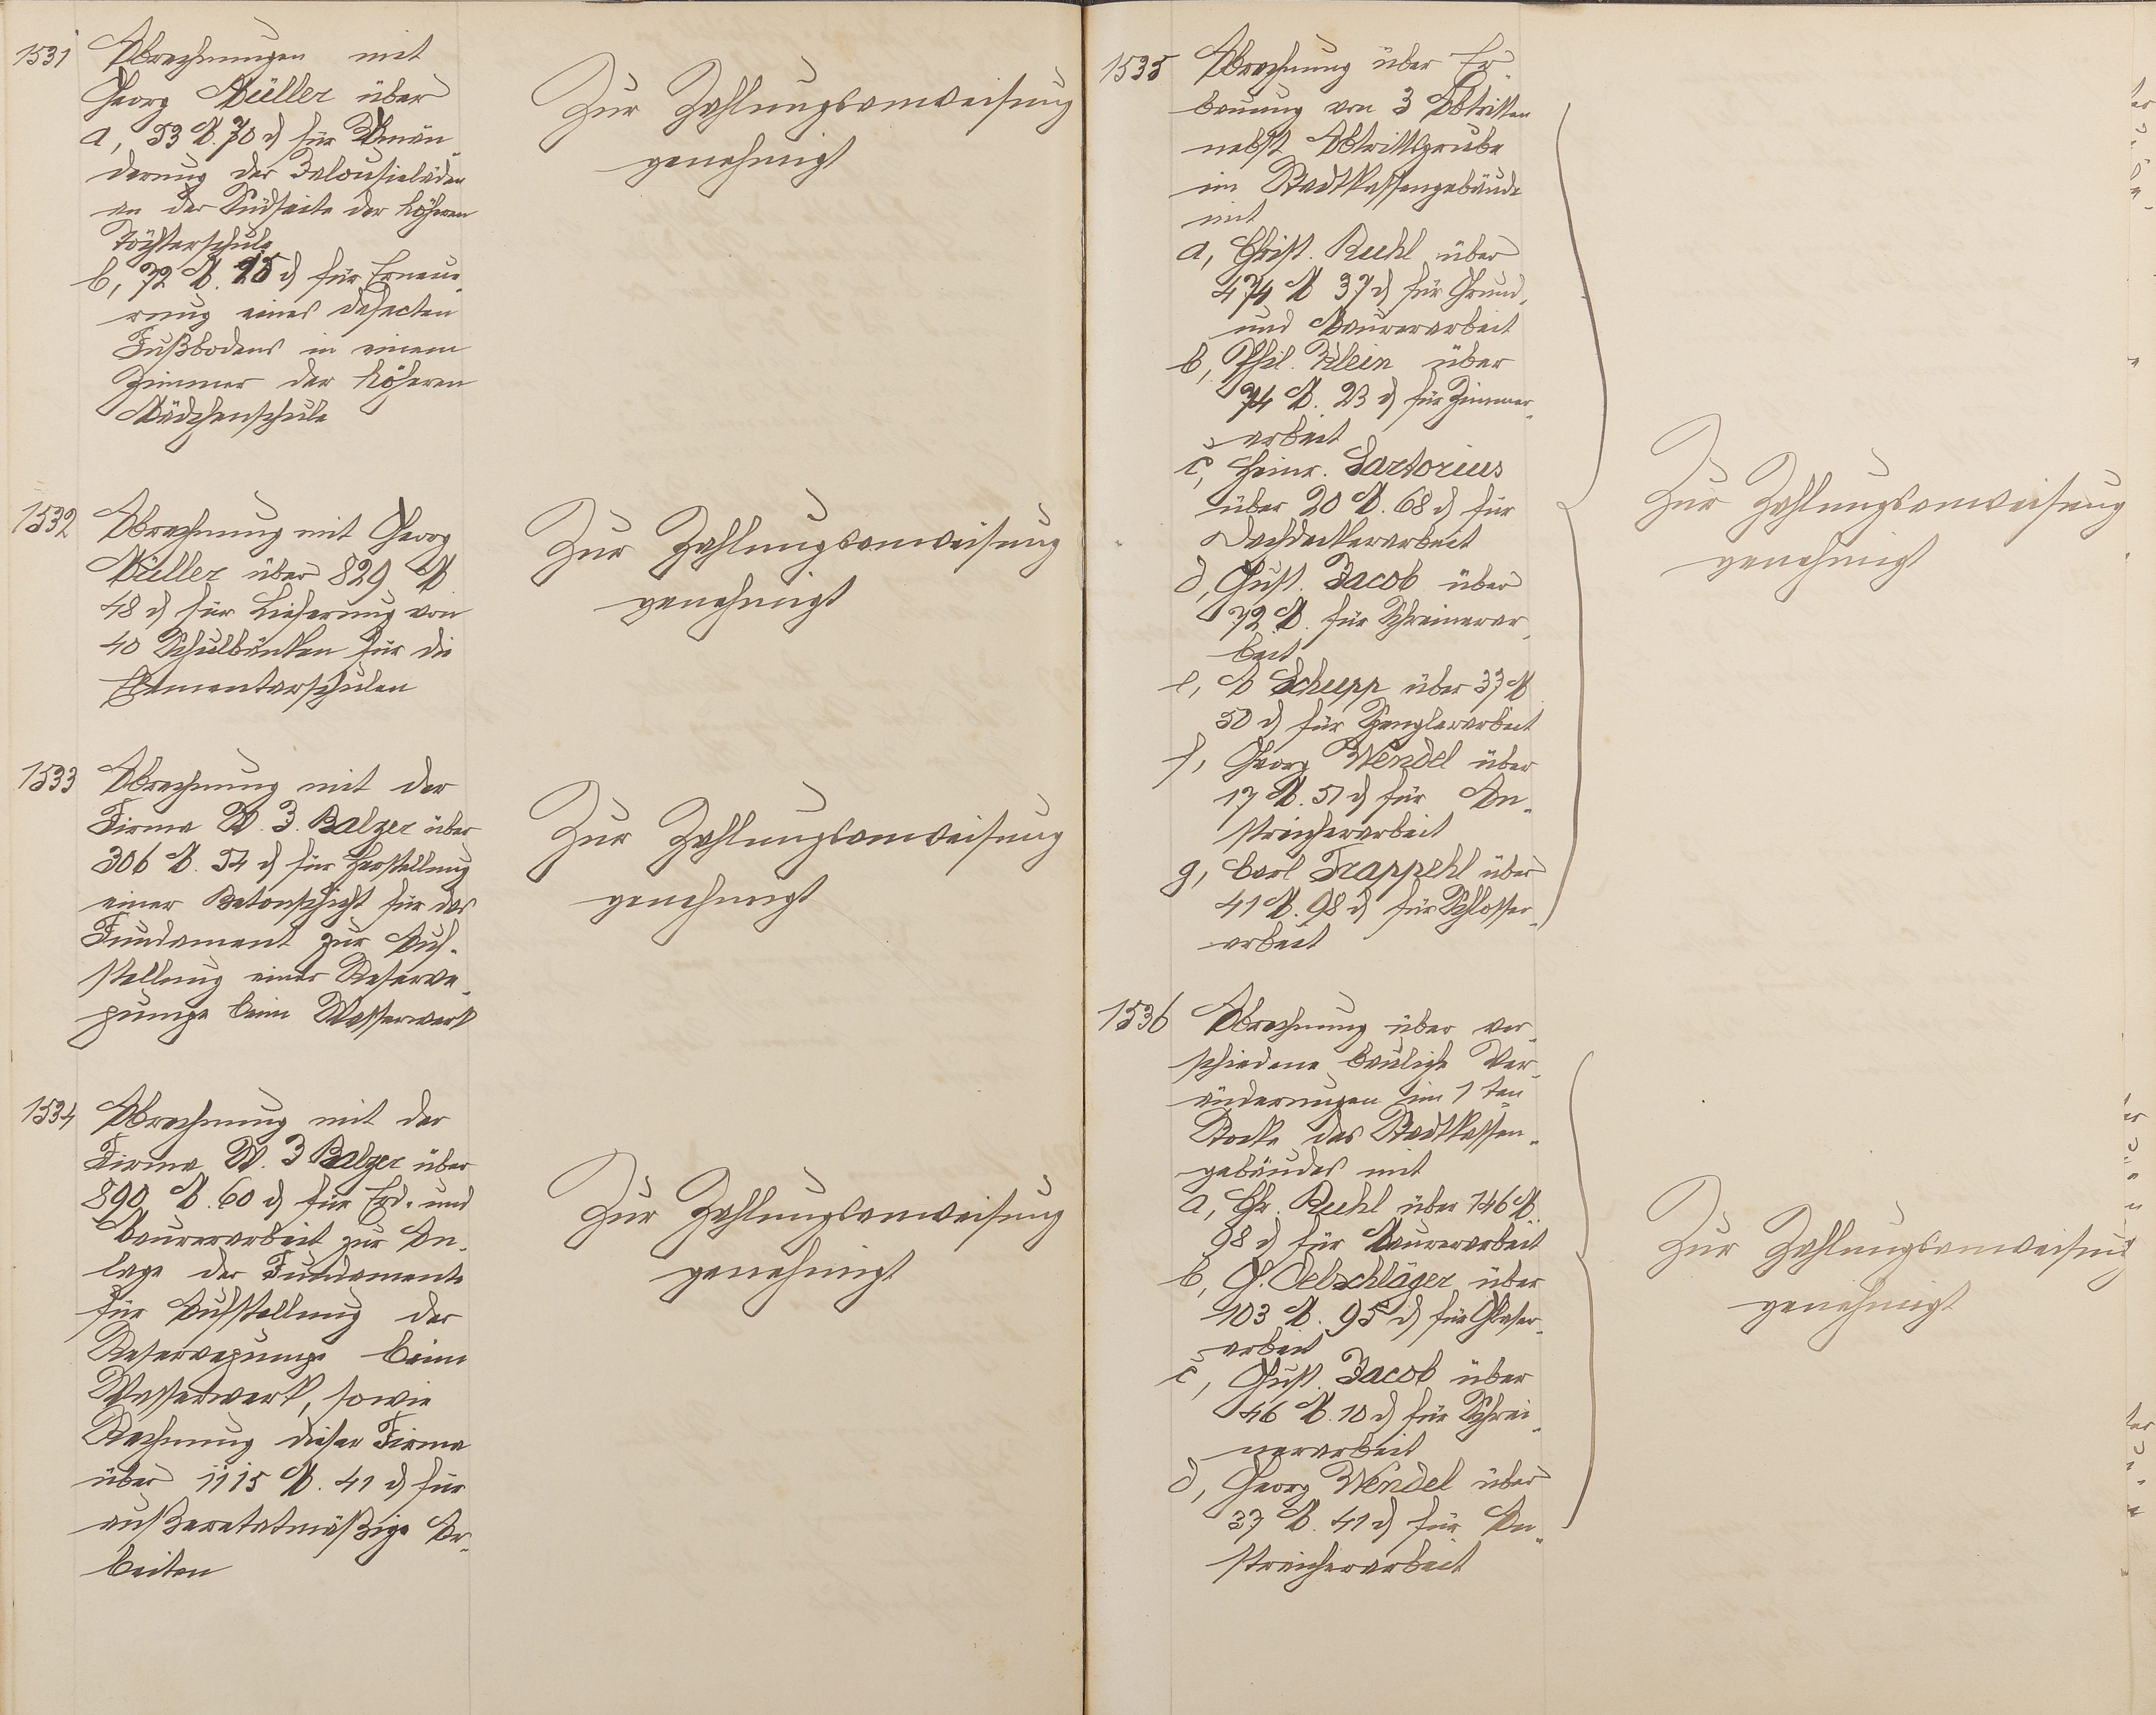 1531 Abrechnungen mit
Georg Müller über
a, 53 M. 70 ₰ für Umän-
derung der Jalousieläden
an der Südseite der höheren
Töchterschule
b, 72 M. 25 ₰ für Erneue-
rung eines defecten
Fußbodens in einem
Zimmer der höheren
Mädchenschule
Zur Zahlungsanweisung
genehmigt
1532 Abrechnung mit Georg
Müller über 829 M
48 ₰ für Lieferung von
40 Schulbänken für die
Elementarschulen
Zur Zahlungsanweisung
genehmigt
1533 Abrechnung mit der
Firma W. J. Balzer über
306 M. 54 ₰ für Herstellung
einer Betonschicht für das
Fundament zur Auf-
stellung einer Reserve-
pumpe beim Wasserwerk
Zur Zahlungsanweisung
genehmigt
1534 Abrechnung mit der
Firma W. J Balzer über
890 M. 60 ₰ für Erd- und
Maurerarbeit zur An-
lage der Fundamente
für Aufstellung der
Reservepumpe beim
Wasserwerk, sowie
Rechnung dieser Firma
über 1115 M. 41 ₰ für
außeretatmäßige Ar-
beiten
Zur Zahlungsanweisung
genehmigt
1535 Abrechnung über Er-
bauung von 3 Abtritten
nebst Abtrittsgrube
im Stadtkassengebäude
mit
a, Christ. Ruhl über
474 M 37 ₰ für Grund-
und Maurerarbeit
b, Phil. Klein über
74 M. 23 ₰ für Zimmer-
arbeit
c, Heinr. Sartorius
über 20 M. 68 ₰ für
Dachdeckerarbeit
d, Gust. Jacob über
72 M. für Schreinerar-
beit
e, A Schupp über 37 M
50 ₰ für Spenglerarbeit
f, Georg Wendel über
17 M. 51 ₰ für An-
streicherarbeit
g, Carl Trappehl über
41 M. 98 ₰ für Schlosser-
arbeit
Zur Zahlungsanweisung
genehmigt
1536 Abrechnung über ver-
schiedene bauliche Ver-
änderungen im 1ten
Stocke des Stadtkassen-
gebäudes mit
a, Chr. Ruhl über 146 M.
98 ₰ für Maurerarbeit
b, G. Oelschläger über
103 M. 95 ₰ für Glaser-
arbeit
c, Gust. Jacob über
46 M. 10 ₰ für Schrei-
nerarbeit
d, Georg Wendel über
37 M. 41 ₰ für An-
streicherarbeit
Zur Zahlungsanweisung
genehmigt